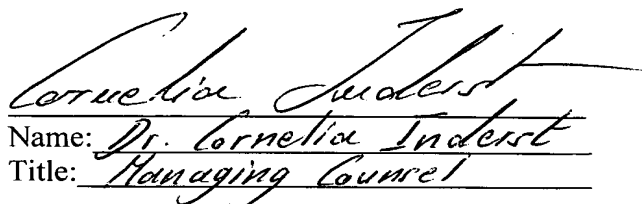 Cornelia Inderst
Name: Dr. Cornelia Inderst
Title: Managing Counsel